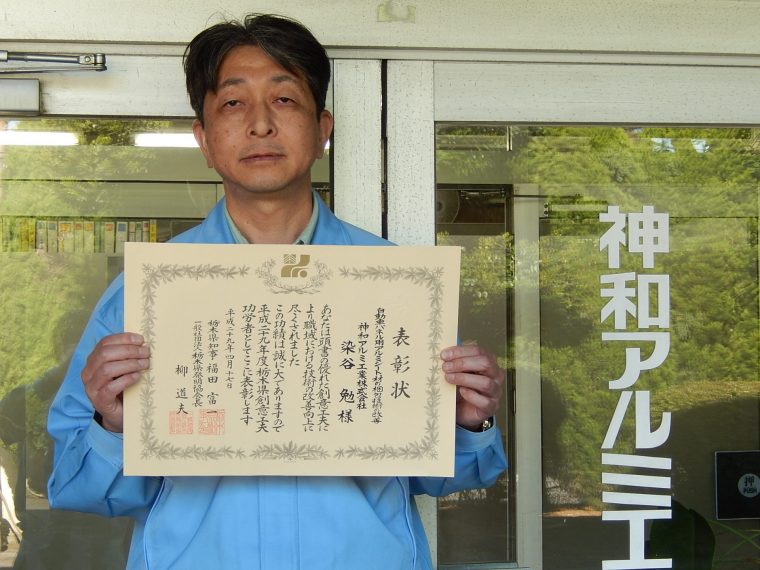 表彰状
自動車バス用アルミシート材の梱包技術の改善
神和アルミ工業株式会社
染谷 勉 様
あなたは頭書の優れた創意工夫に
より職域における技術の改善向上に
尽くされました
この功績は誠に大でありますので
平成二十九年度栃木県創意工夫
功労者としてここに表彰します
平成二十九年四月十七日
栃木県知事 福田 富一
一般社団法人栃木県発明協会会長
柳 道夫
神和アルミエ
押
PUSH